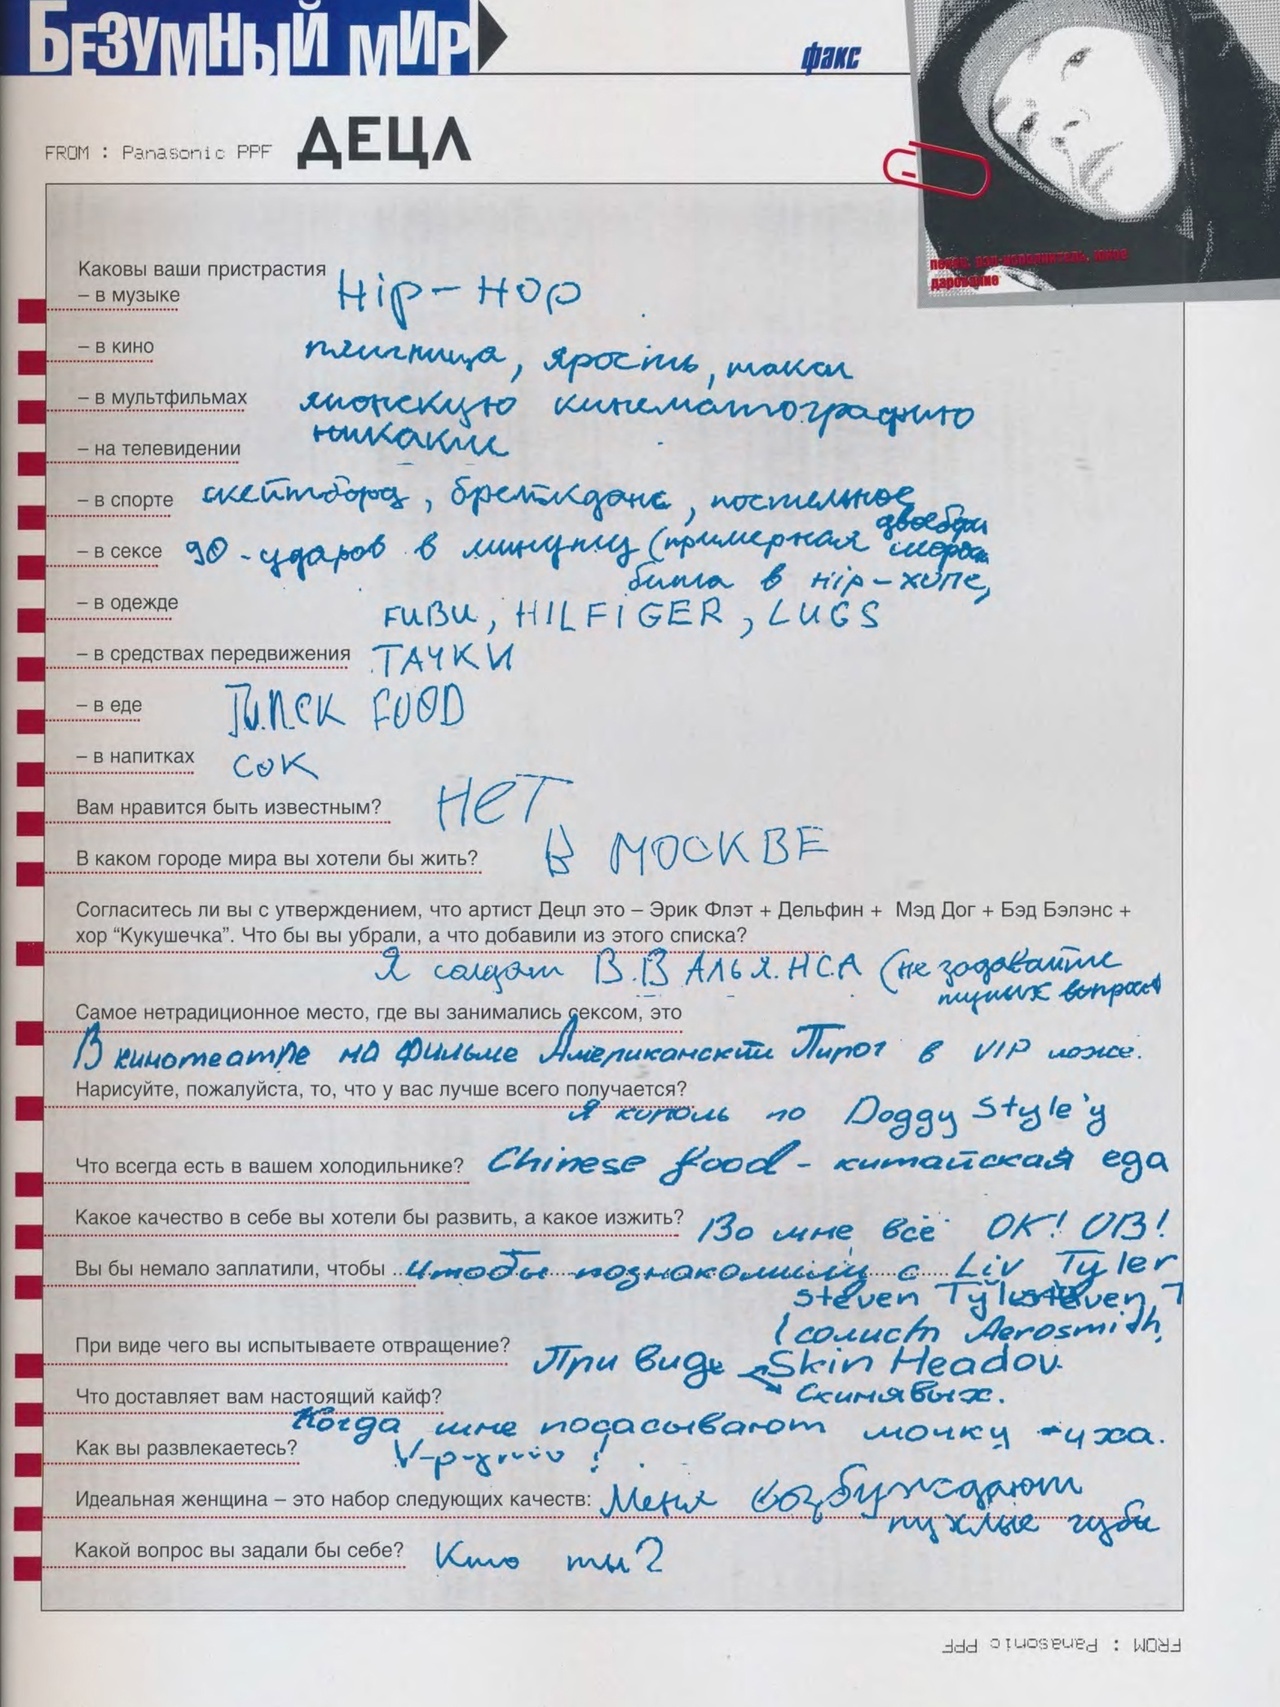 БЕЗУМНЫЙ МИР
факс
FROM : Panasonic PPF ДЕЦЛ
певец, рэп-исполнитель, юное
дарование
Каковы ваши пристрастия
– в музыке Hip-Hop
– в кино пятница, ярость, такси
– в мультфильмах японскую кинематографию
– на телевидении никакие
– в спорте скейтборд, брейкданс, постельное
двоебори
– в сексе 90-ударов в минуту (примерная
бита в Hip-хопе,
– в одежде FUBU, HILFIGER, LUGS
– в средствах передвижения ТАЧКИ
– в еде FOOD
– в напитках СОК
Вам нравится быть известным? НЕТ
В каком городе мира вы хотели бы жить? В МОСКВЕ
Согласитесь ли вы с утверждением, что артист Децл это – Эрик Флэт + Дельфин + Мэд Дог + Бэд Бэлэнс +
хор “Кукушечка”. Что бы вы убрали, а что добавили из этого списка?
Я солдат B.B АЛЬЯ.НСА (не задавайте
глупых вопросов
Самое нетрадиционное место, где вы занимались сексом, это
В кинотеатре на фильме Американский Пирог в VIP ложе.
Нарисуйте, пожалуйста, то, что у вас лучше всего получается?
Я король по Doggy Style'у
Что всегда есть в вашем холодильнике? Chinese food - китайская еда
Какое качество в себе вы хотели бы развить, а какое изжить? Во мне всё ОК! ОВ!
Вы бы немало заплатили, чтобы чтобы познакомили с Liv Tyler
steven
(солист Aerosmith,
При виде чего вы испытываете отвращение? При виде Skin Headov.
Скинявых.
Что доставляет вам настоящий кайф?
Когда мне посасывают мочку уха.
Как вы развлекаетесь?
Идеальная женщина – это набор следующих качеств: Меня возбуждают
пухлые губы
Какой вопрос вы задали бы себе? Кто ты?
FROM : Panasonic PPF